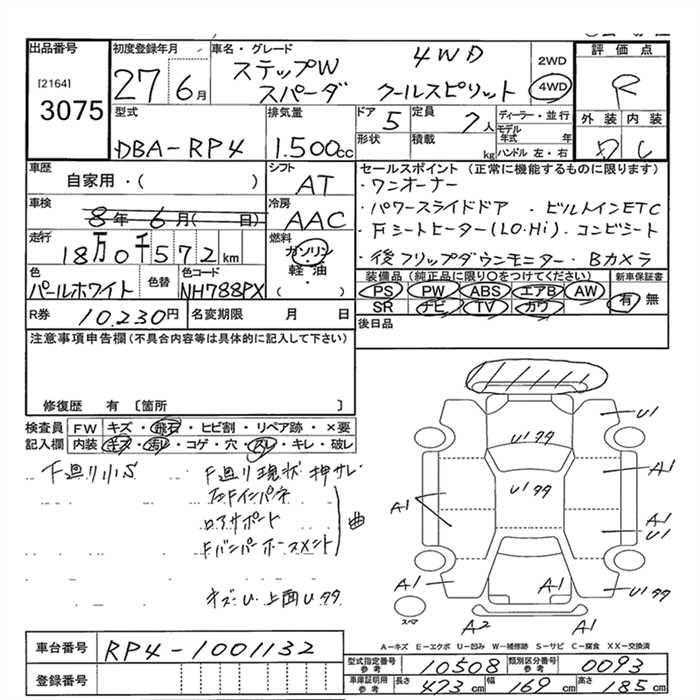 出品番号
[2164]
3075
初度登録年月
27年6月
車名・グレード
ステップW 4WD
スパーダ クールスピリット
2WD
4WD
評価点
R
外装 内装
C
型式
DBA-RP4
排気量
1.500cc
ドア
5
定員
7人
形状
積載
kg
ディーラー・並行
モデル年式 年
ハンドル 左・右
車歴
自家用・( )
シフト
AT
車検
8年6月( 日)
冷房
AAC
走行
18万0千572km
燃料
ガソリン
・
軽・油
( )
色
パールホワイト
色替
色コード
NH788PX
R券
10.230円
名変期限 月 日
セールスポイント(正常に機能するものに限ります)
・ワンオーナー
・パワースライドドア ・ビルトインETC
・Fシートヒーター(LO.Hi)・コンビシート
・後フリップダウンモニター・Bカメラ
装備品(純正品に限り○をつけてください)
新車保証書
PS PW ABS エアB AW
SR ナビ TV カワ
有 無
後日品
注意事項申告欄(不具合内容等は具体的に記入して下さい)
修復歴 有 〔箇所 〕
検査員記入欄
FW キズ・飛石・ヒビ割・リペア跡・×要
内装 キズ・汚レ・コゲ・穴・スレ・キレ・破レ
下廻り小S
F廻り現状 押サレ
左Fインパネ
ロアサポート
Fバンパーホースメント
曲
キズU 上面U
U1
U1
U1
A1
A1
A1
U1
A1
A1
A2
A1
U1
スペア
A−キズ E−エクボ U−凹み W−補修跡 S−サビ C−腐食 XX−交換済
車台番号
RP4-1001132
登録番号
型式指定番号 参考
10508
類別区分番号 参考
0093
車庫証明用 参考
長さ 473cm
幅 169cm
高さ 185cm